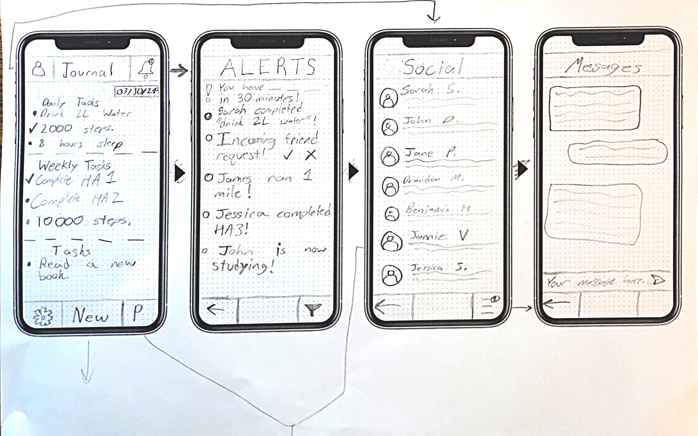 Journal
03/30/24
Daily Tasks
• Drink 2L Water
✓ 2000 steps.
• 8 hours sleep
Weekly Tasks
✓ Complete HA 1
• Complete HA2
• 10000 steps.
Tasks
• Read a new
book.
New
P
ALERTS
You have
in 30 minutes!
Sarah completed
"drink 2L water"!
Incoming friend
request! ✓ X
James ran 1
mile!
Jessica completed
HA3!
John is now
studying!
Social
Sarah S.
John D.
Jane P.
Brandon M.
Benjamin H
Jamie V
Jessica S.
Messages
Your message here.